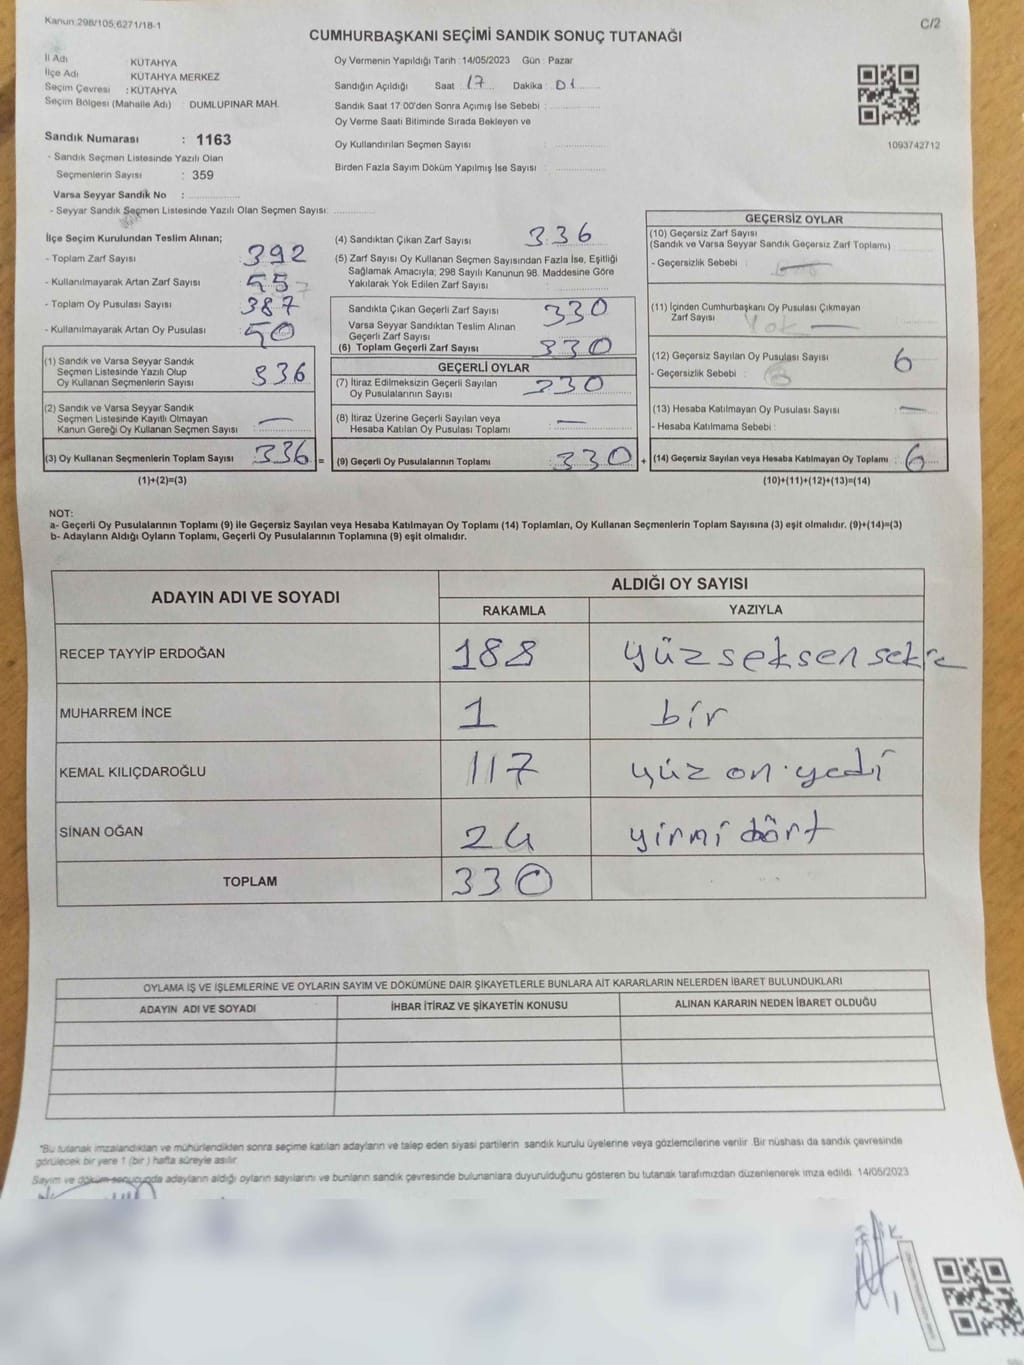 Kanun:298/105;6271/18-1
C/2
CUMHURBAŞKANI SEÇİMİ SANDIK SONUÇ TUTANAĞI
İl Adı : KÜTAHYA
İlçe Adı : KÜTAHYA MERKEZ
Seçim Çevresi : KÜTAHYA
Seçim Bölgesi (Mahalle Adı) : DUMLUPINAR MAH.
Sandık Numarası : 1163
- Sandık Seçmen Listesinde Yazılı Olan
Seçmenlerin Sayısı : 359
Varsa Seyyar Sandık No :
- Seyyar Sandık Seçmen Listesinde Yazılı Olan Seçmen Sayısı:
Oy Vermenin Yapıldığı Tarih : 14/05/2023 Gün : Pazar
Sandığın Açıldığı Saat : 17 Dakika : 01
Sandık Saat 17:00'den Sonra Açımış İse Sebebi :
Oy Verme Saati Bitiminde Sırada Bekleyen ve
Oy Kullandırılan Seçmen Sayısı :
Birden Fazla Sayım Döküm Yapılmış İse Sayısı :
1093742712
İlçe Seçim Kurulundan Teslim Alınan;
- Toplam Zarf Sayısı : 392
- Kullanılmayarak Artan Zarf Sayısı : 55
- Toplam Oy Pusulası Sayısı : 387
- Kullanılmayarak Artan Oy Pusulası : 50
(1) Sandık ve Varsa Seyyar Sandık
Seçmen Listesinde Yazılı Olup
Oy Kullanan Seçmenlerin Sayısı : 336
(2) Sandık ve Varsa Seyyar Sandık
Seçmen Listesinde Kayıtlı Olmayan
Kanun Gereği Oy Kullanan Seçmen Sayısı : —
(3) Oy Kullanan Seçmenlerin Toplam Sayısı : 336 =
(1)+(2)=(3)
(4) Sandıktan Çıkan Zarf Sayısı : 336
(5) Zarf Sayısı Oy Kullanan Seçmen Sayısından Fazla İse, Eşitliği
Sağlamak Amacıyla; 298 Sayılı Kanunun 98. Maddesine Göre
Yakılarak Yok Edilen Zarf Sayısı :
Sandıkta Çıkan Geçerli Zarf Sayısı : 330
Varsa Seyyar Sandıktan Teslim Alınan
Geçerli Zarf Sayısı :
(6) Toplam Geçerli Zarf Sayısı : 330
GEÇERLİ OYLAR
(7) İtiraz Edilmeksizin Geçerli Sayılan
Oy Pusulalarının Sayısı : 330
(8) İtiraz Üzerine Geçerli Sayılan veya
Hesaba Katılan Oy Pusulası Toplamı : —
(9) Geçerli Oy Pusulalarının Toplamı : 330 +
GEÇERSİZ OYLAR
(10) Geçersiz Zarf Sayısı
(Sandık ve Varsa Seyyar Sandık Geçersiz Zarf Toplamı)
- Geçersizlik Sebebi : —
(11) İçinden Cumhurbaşkanı Oy Pusulası Çıkmayan
Zarf Sayısı : Yok —
(12) Geçersiz Sayılan Oy Pusulası Sayısı : 6
- Geçersizlik Sebebi :
(13) Hesaba Katılmayan Oy Pusulası Sayısı : —
- Hesaba Katılmama Sebebi :
(14) Geçersiz Sayılan veya Hesaba Katılmayan Oy Toplamı : 6
(10)+(11)+(12)+(13)=(14)
NOT:
a- Geçerli Oy Pusulalarının Toplamı (9) ile Geçersiz Sayılan veya Hesaba Katılmayan Oy Toplamı (14) Toplamları, Oy Kullanan Seçmenlerin Toplam Sayısına (3) eşit olmalıdır. (9)+(14)=(3)
b- Adayların Aldığı Oyların Toplamı, Geçerli Oy Pusulalarının Toplamına (9) eşit olmalıdır.
ADAYIN ADI VE SOYADI
ALDIĞI OY SAYISI
RAKAMLA YAZIYLA
RECEP TAYYİP ERDOĞAN 188 yüzseksensekiz
MUHARREM İNCE 1 bir
KEMAL KILIÇDAROĞLU 117 yüz on yedi
SİNAN OĞAN 24 yirmi dört
TOPLAM 330
OYLAMA İŞ VE İŞLEMLERİNE VE OYLARIN SAYIM VE DÖKÜMÜNE DAİR ŞİKAYETLERLE BUNLARA AİT KARARLARIN NELERDEN İBARET BULUNDUKLARI
ADAYIN ADI VE SOYADI İHBAR İTİRAZ VE ŞİKAYETİN KONUSU ALINAN KARARIN NEDEN İBARET OLDUĞU
*Bu tutanak imzalandıktan ve mühürlendikten sonra seçime katılan adayların ve talep eden siyasi partilerin sandık kurulu üyelerine veya gözlemcilerine verilir. Bir nüshası da sandık çevresinde
görülecek bir yere 1 (bir) hafta süreyle asılır.
Sayım ve döküm sonucunda adayların aldığı oyların sayılarını ve bunların sandık çevresinde bulunanlara duyurulduğunu gösteren bu tutanak tarafımızdan düzenlenerek imza edildi. 14/05/2023